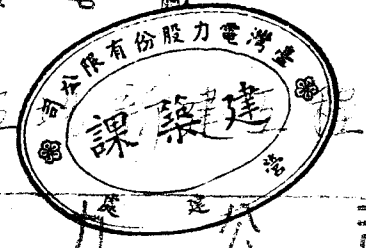 臺灣電力股份有限公司
建築課
營建處